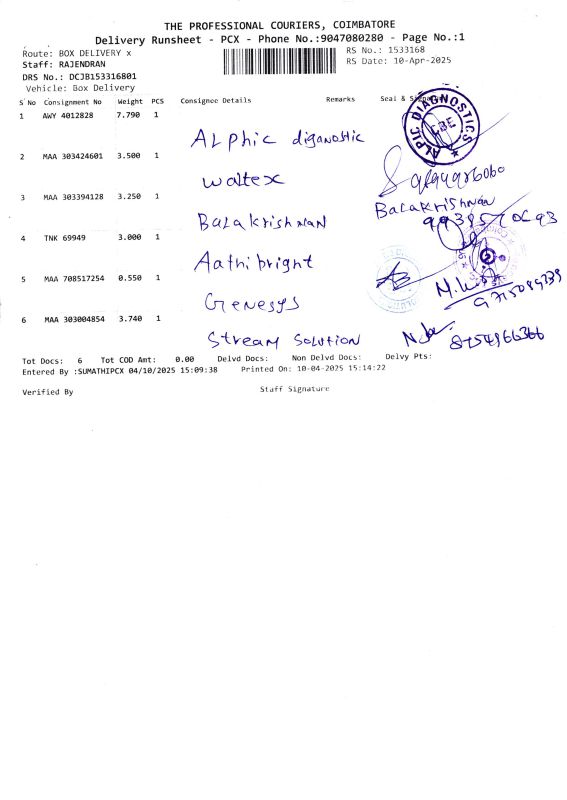 THE PROFESSIONAL COURIERS, COIMBATORE
Delivery Runsheet - PCX - Phone No.:9047080280 - Page No.:1
Route: BOX DELIVERY x
RS No.: 1533168
Staff: RAJENDRAN
RS Date: 10-Apr-2025
DRS No.: DCJB153316801
Vehicle: Box Delivery
S No Consignment No Weight PCS Consignee Details Remarks Seal &
1 AWY 4012828 7.790 1
ALPhic diganostic
ALPIC DIAGNOSTICS
CBE
2 MAA 303424601 3.500 1
waltex
3 MAA 303394128 3.250 1
Balakrishnan
Balakrishnan
4 TNK 69949 3.000 1
Aathibright
5 MAA 708517254 0.550 1
Genesys
6 MAA 303004854 3.740 1
Stream Solution
8754966366
Tot Docs: 6 Tot COD Amt: 0.00 Delvd Docs: Non Delvd Docs: Delvy Pts:
Entered By :SUMATHIPCX 04/10/2025 15:09:38 Printed On: 10-04-2025 15:14:22
Verified By
Staff Signature